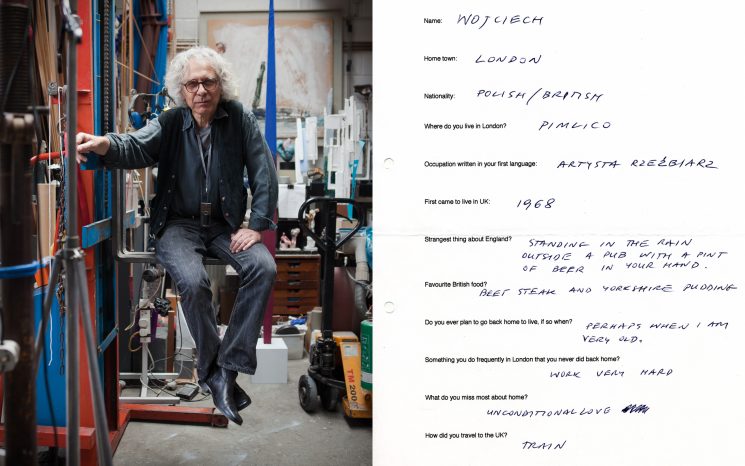 Name: WOJCIECH
Home town: LONDON
Nationality: POLISH/BRITISH
Where do you live in London? PIMLICO
Occupation written in your first language: ARTYSTA RZEŹBIARZ
First came to live in UK: 1968
Strangest thing about England? STANDING IN THE RAIN
OUTSIDE A PUB WITH A PINT
OF BEER IN YOUR HAND.
Favourite British food?
BEEF STEAK AND YORKSHIRE PUDDING
Do you ever plan to go back home to live, if so when? PERHAPS WHEN I AM
VERY OLD.
Something you do frequently in London that you never did back home?
WORK VERY HARD
What do you miss most about home?
UNCONDITIONAL LOVE
How did you travel to the UK?
TRAIN
TM 2000